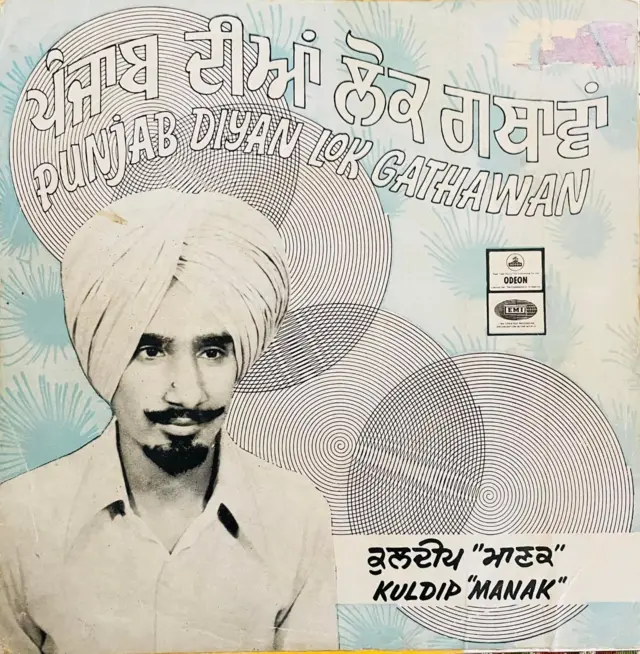 ਪੰਜਾਬ ਦੀਆਂ ਲੋਕ ਗਥਾਵਾਂ
PUNJAB DIYAN LOK GATHAWAN
ODEON
EMI
ਕੁਲਦੀਪ "ਮਾਣਕ"
KULDIP "MANAK"